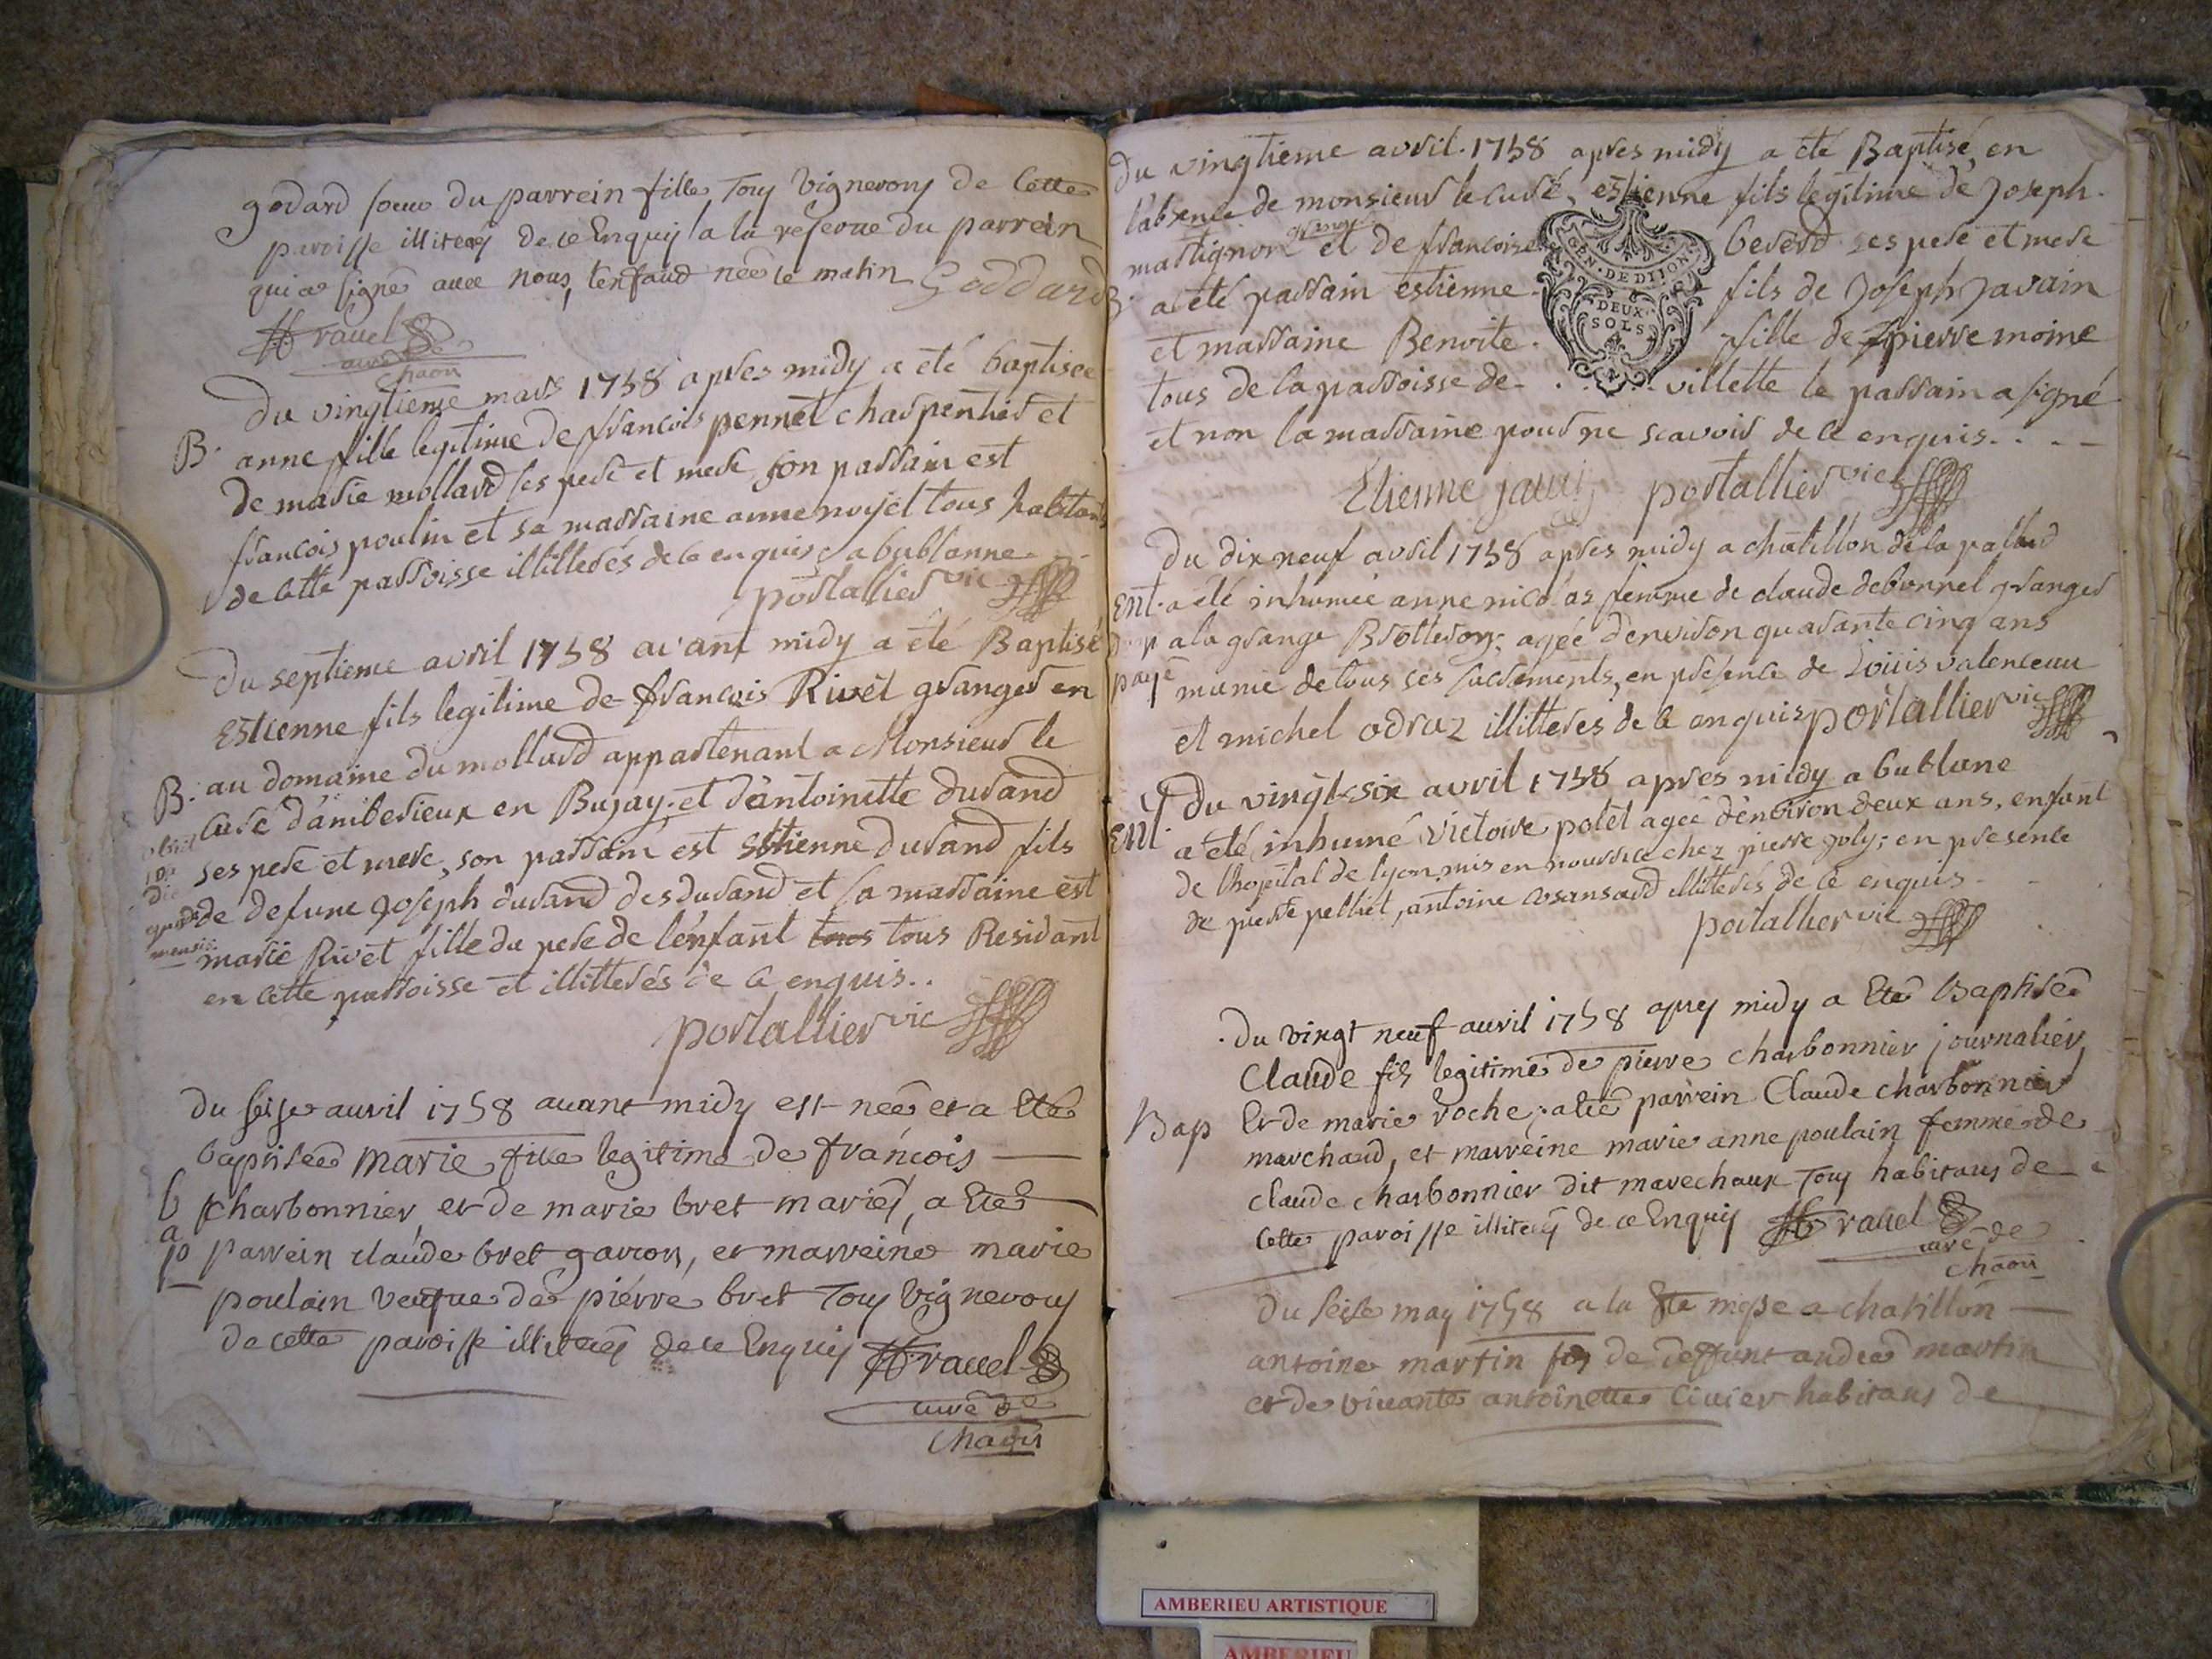 godard soeur du parrein fille, Tous Vignerons de Cette
paroisse illiterés de ce Enquis a la reserve du parrein
qui a signé avec nous, l'enfant née le matin Goddard
ravel
curé de
chaon
Du vingtieme mars 1758 apres midy a été baptisée
B. anne fille legitime de françois pennet charpentier et
de marie mollard ses pere et mere son parrain est
françois poulin et sa marraine anne noyel tous habitans
de cette parroisse illitterés de ce enquis a bublanne
portallier vic
Du septieme avril 1758 avant midy a été Baptisé
Estienne fils legitime de françois Rivet granger en
B. au domaine du mollard appartenant a Monsieur le
curé d'amberieux en Bujay, et d'antoinette durand
ses pere et mere, son parrain est Estienne Durand fils
de defunc joseph durand des durand et sa marraine est
marie Rivet fille du pere de l'enfant tous tous Residant
en cette parroisse et illitterés de ce enquis..
portallier vic
Du seise avril 1758 avant midy est née et a Eté
baptisée marie fille legitime de françois
b a p charbonnier et de marie bret mariés, a Eté
parrein claude bret garçon, et marreine marie
poulain veufve de pierre bret Tous Vignerons
de cette paroisse illiterés de ce Enquis ravel
curé de
chaon
du vingtieme avril. 1758 apres midy a été Baptisé, en
l'absence de monsieur le curé, estienne fils legitime de Joseph.
granger
martignon et de françoise bererd ses pere et mere
B. a été parrain estienne fils de Joseph Javain
et marraine Benoite. fille de pierre moine
tous de la parroisse de villette le parrain a signé
et non la marraine pour ne scavoir de ce enquis. . . -
Etienne portallier vic
GEN. DE DIJON
DEUX
SOLS
Du dix neuf avril 1758 apres midy a chatillon de la pallud
Ent. a été inhumée anne nicolas femme de claude debonnel granger
a la grange Brotteron, agée d'environ quarante cinq ans
payé munie de tous ses sacrements, en presence de Loüis valenceau
et michel odraz illitterés de ce enquis portallier vic
Du vingt-six avril 1758 apres midy a bublane
Ent. a été inhumé Victoire potet agée d'environ deux ans, enfant
de l'hopital de lyon, mis en nourrice chez pierre joly; en presence
de pierre pelliet, antoine illitterés de ce enquis
portallier vic
Du vingt neuf avril 1758 apres midy a Eté Baptiseé
Claude fils legitime de pierre charbonnier journalier
Bap Et de marie roche; a été parrein Claude charbonnier
marchand, et marreine marie anne poulain femme de
claude charbonnier dit marechaux Tous habitans de
Cette paroisse illiterés de ce Enquis ravel
curé de
chaon
Du seise may 1758 a la Ste messe a chatillon
antoine martin fils de deffunt andré martin
et de vivante antoinette Civier habitans de
AMBERIEU ARTISTIQUE
AMBERIEU